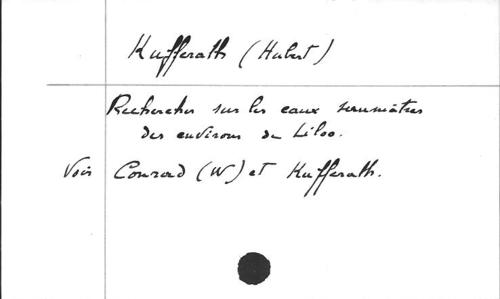 Kufferath (Hubert)
Recherches sur les eaux saumâtres
des environs de Liloo.
Voir Conrad (W) et Kufferath.